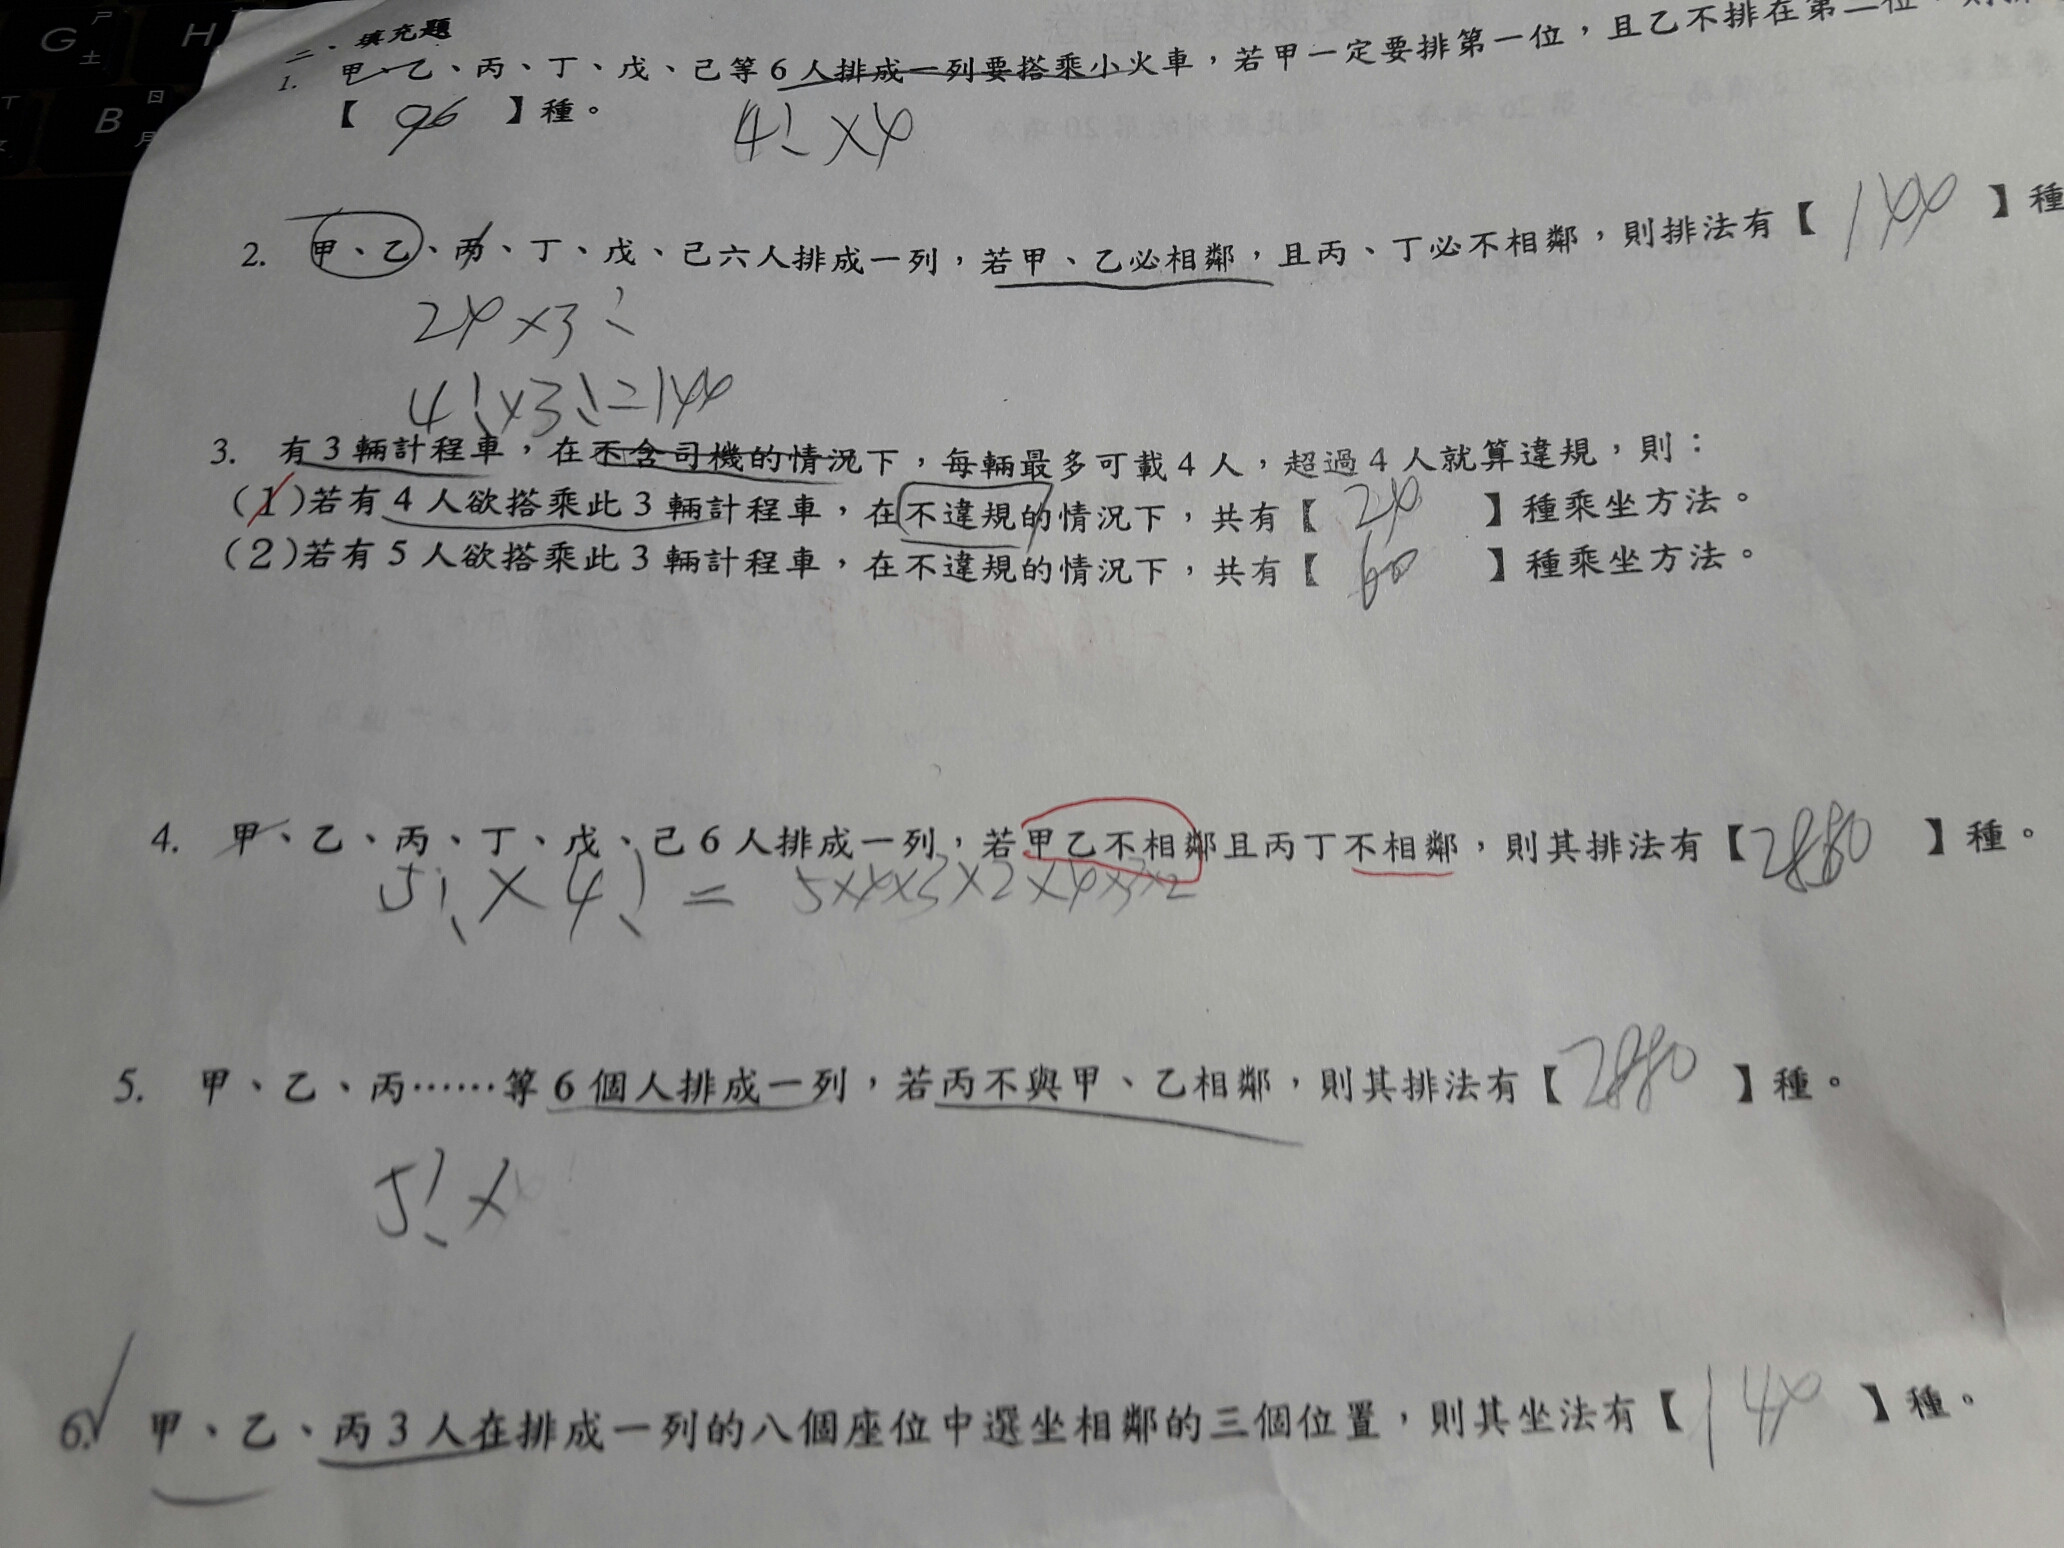 G ㄕ ㄊ H
B ㄖ
二、填充題
1. 甲、乙、丙、丁、戊、己等6人排成一列要搭乘小火車，若甲一定要排第一位，且乙不排在第二位，則排
【 96 】種。 4! ×4
2. 甲、乙、丙、丁、戊、己六人排成一列，若甲、乙必相鄰，且丙、丁必不相鄰，則排法有【 144 】種
24×3!
4!×3!=144
3. 有3輛計程車，在不含司機的情況下，每輛最多可載4人，超過4人就算違規，則：
(1)若有4人欲搭乘此3輛計程車，在不違規的情況下，共有【 24 】種乘坐方法。
(2)若有5人欲搭乘此3輛計程車，在不違規的情況下，共有【 60 】種乘坐方法。
4. 甲、乙、丙、丁、戊、己6人排成一列，若甲乙不相鄰且丙丁不相鄰，則其排法有【2880 】種。
5! × 4! = 5×4×3×2×4×3×2
5. 甲、乙、丙……等6個人排成一列，若丙不與甲、乙相鄰，則其排法有【2880 】種。
5! ×
6. 甲、乙、丙3人在排成一列的八個座位中選坐相鄰的三個位置，則其坐法有【 144 】種。